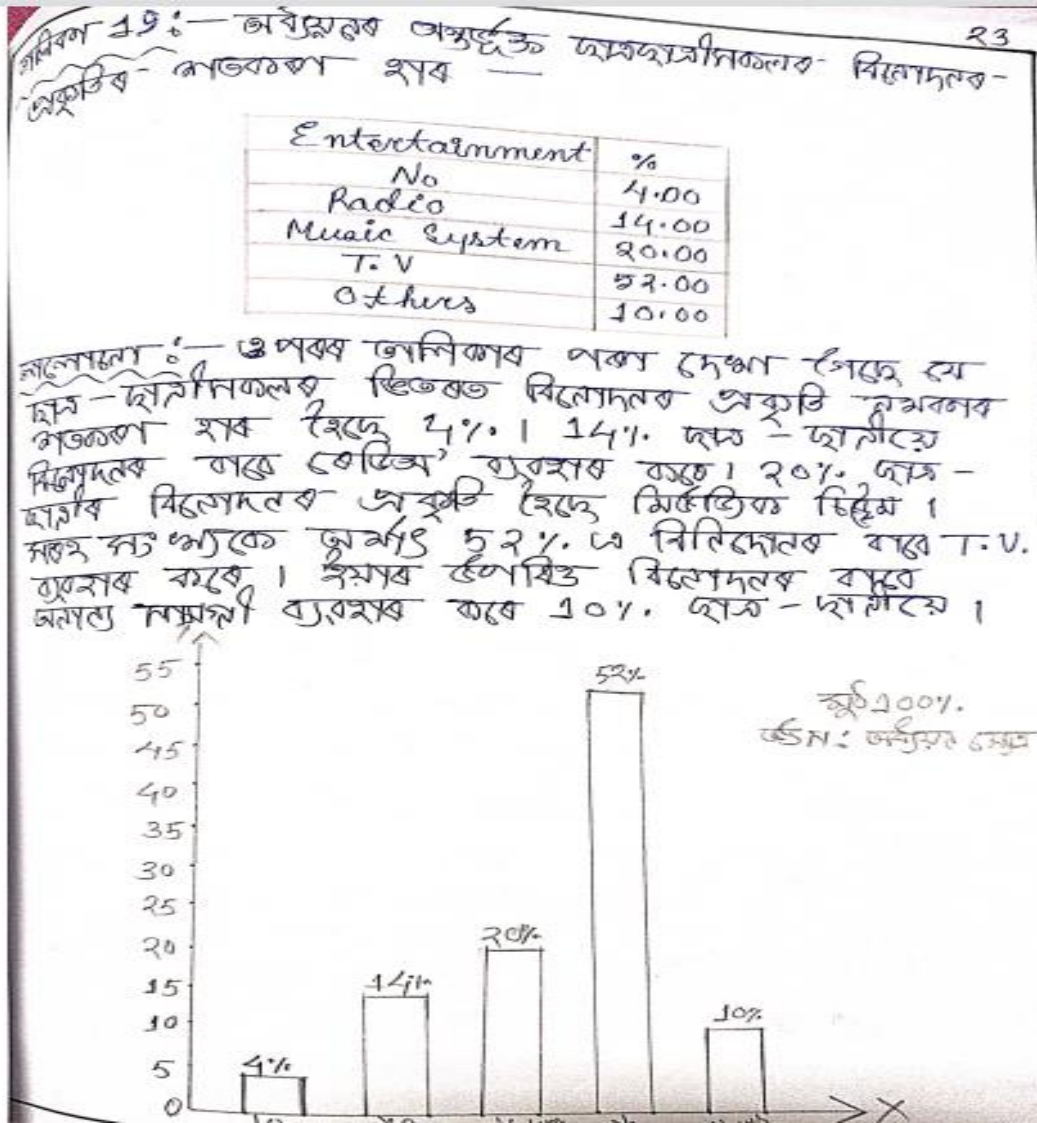 23
তালিকা 19 :— অধ্যয়নৰ অন্তৰ্ভুক্ত ছাত্ৰছাত্ৰীসকলৰ বিনোদনৰ
প্ৰকৃতিৰ শতকৰা হাৰ —
Entertainment %
No 4.00
Radio 14.00
Music System 20.00
T.V 52.00
Others 10.00
:— ওপৰৰ তালিকাৰ পৰা দেখা গৈছে যে
ছাত্ৰ-ছাত্ৰীসকলৰ ভিতৰত বিনোদনৰ প্ৰকৃতি নথকাৰ
শতকৰা হাৰ হৈছে 4%। 14% ছাত্ৰ-ছাত্ৰীয়ে
বিনোদনৰ বাবে ৰেডিঅ' ব্যৱহাৰ কৰে। 20% ছাত্ৰ-
ছাত্ৰীৰ বিনোদনৰ প্ৰকৃতি হৈছে মিউজিক চিষ্টেম।
সৰহ সংখ্যকে অৰ্থাৎ 52% এ বিনিদোনৰ বাবে T.V.
ব্যৱহাৰ কৰে। ইয়াৰ উপৰিও বিনোদনৰ বাবে
অন্যান্য সামগ্ৰী ব্যৱহাৰ কৰে 10% ছাত্ৰ-ছাত্ৰীয়ে।
55
50
45
40
35
30
25
20
15
10
5
0
4%
14%
20%
52%
10%
মুঠ 100%
উৎস: অধ্যয়ন ক্ষেত্ৰ
X